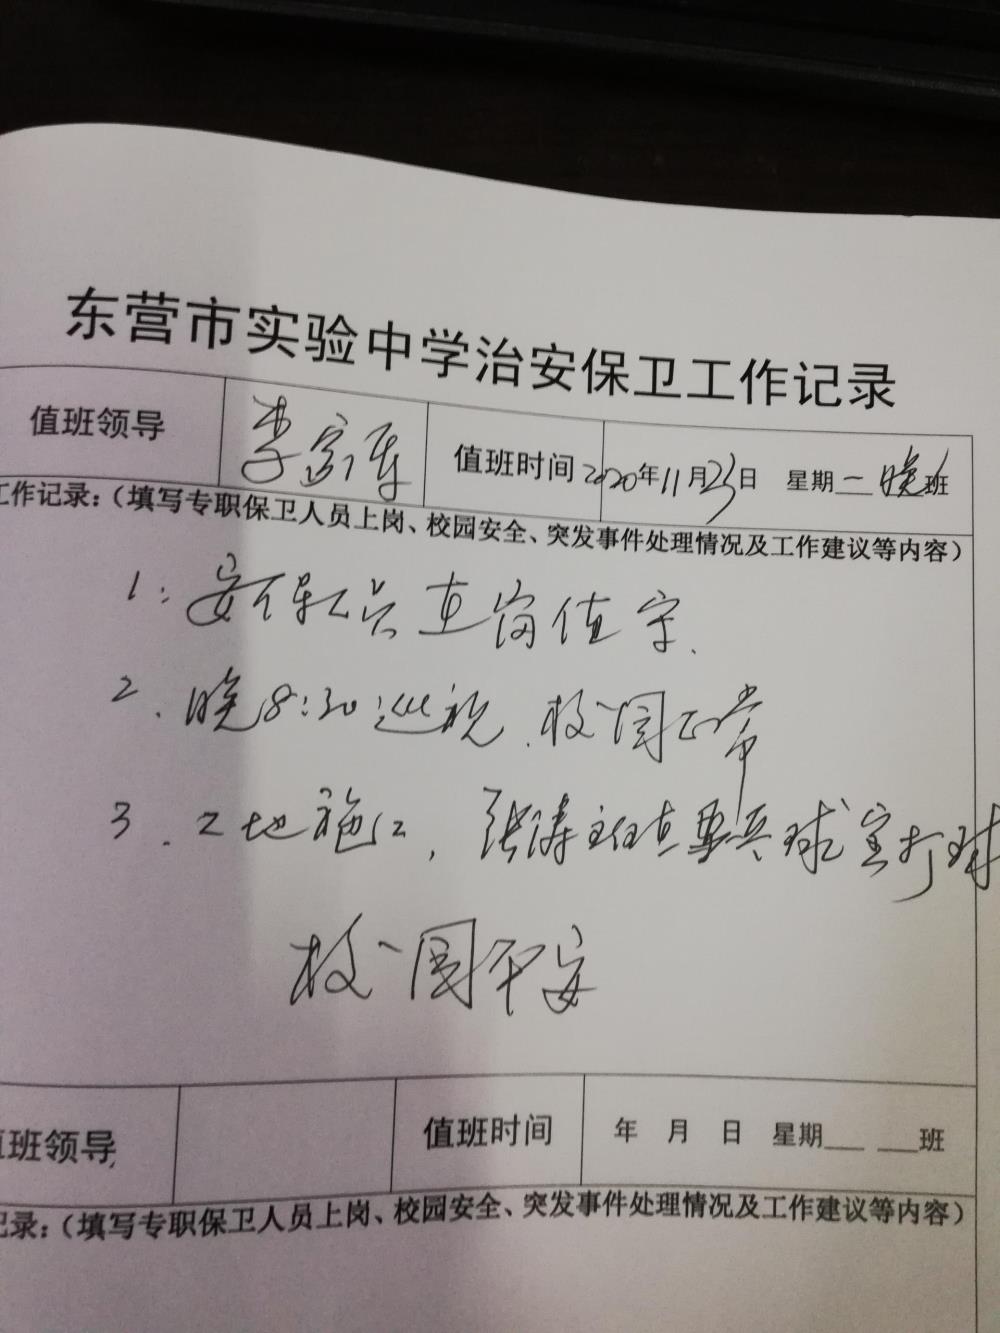 东营市实验中学治安保卫工作记录
值班领导 李 值班时间 2020年11月23日 星期一 晚班
工作记录：（填写专职保卫人员上岗、校园安全、突发事件处理情况及工作建议等内容）
1: 安保人员在岗值守.
2. 晚8:30巡视.校园正常
3. 工地施工, 张涛 球室打球
校园平安
值班领导 值班时间 年 月 日 星期___ ___班
记录：（填写专职保卫人员上岗、校园安全、突发事件处理情况及工作建议等内容）